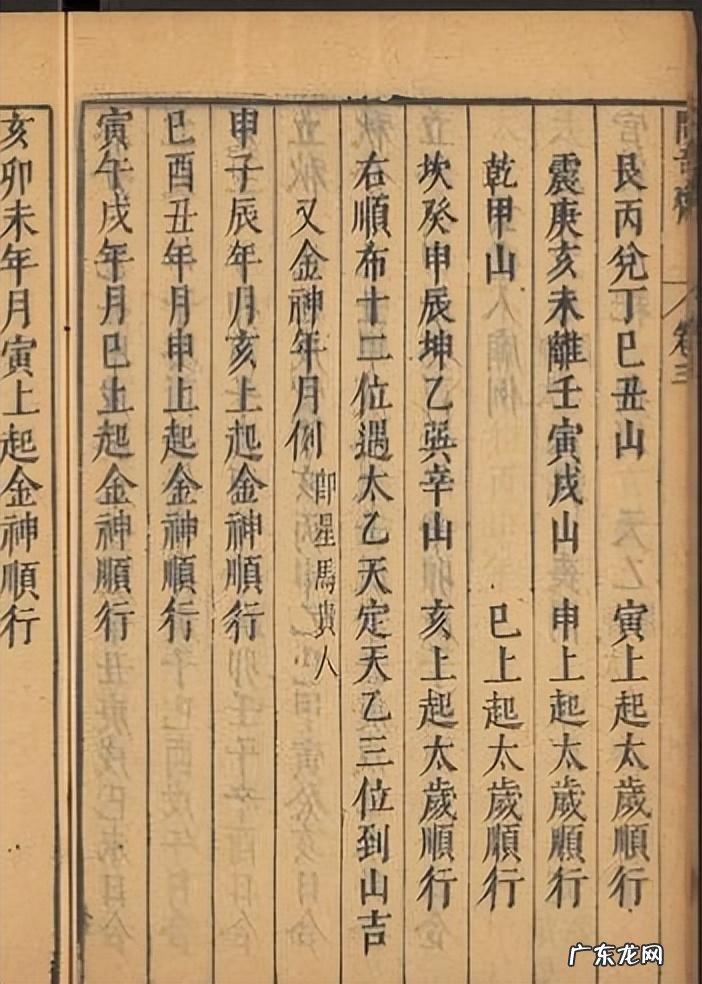 卷三
艮丙兌丁巳丑山 寅上起太歲順行
震庚亥未離壬寅戌山 申上起太歲順行
乾甲山 巳上起太歲順行
坎癸申辰坤乙巽辛山 亥上起太歲順行
右順布十二位遇太乙天定天乙三位到山吉
又金神年月例 即星馬貴人
申子辰年月亥上起金神順行
巳酉丑年月申上起金神順行
寅午戌年月巳上起金神順行
亥卯未年月寅上起金神順行
广东龙网